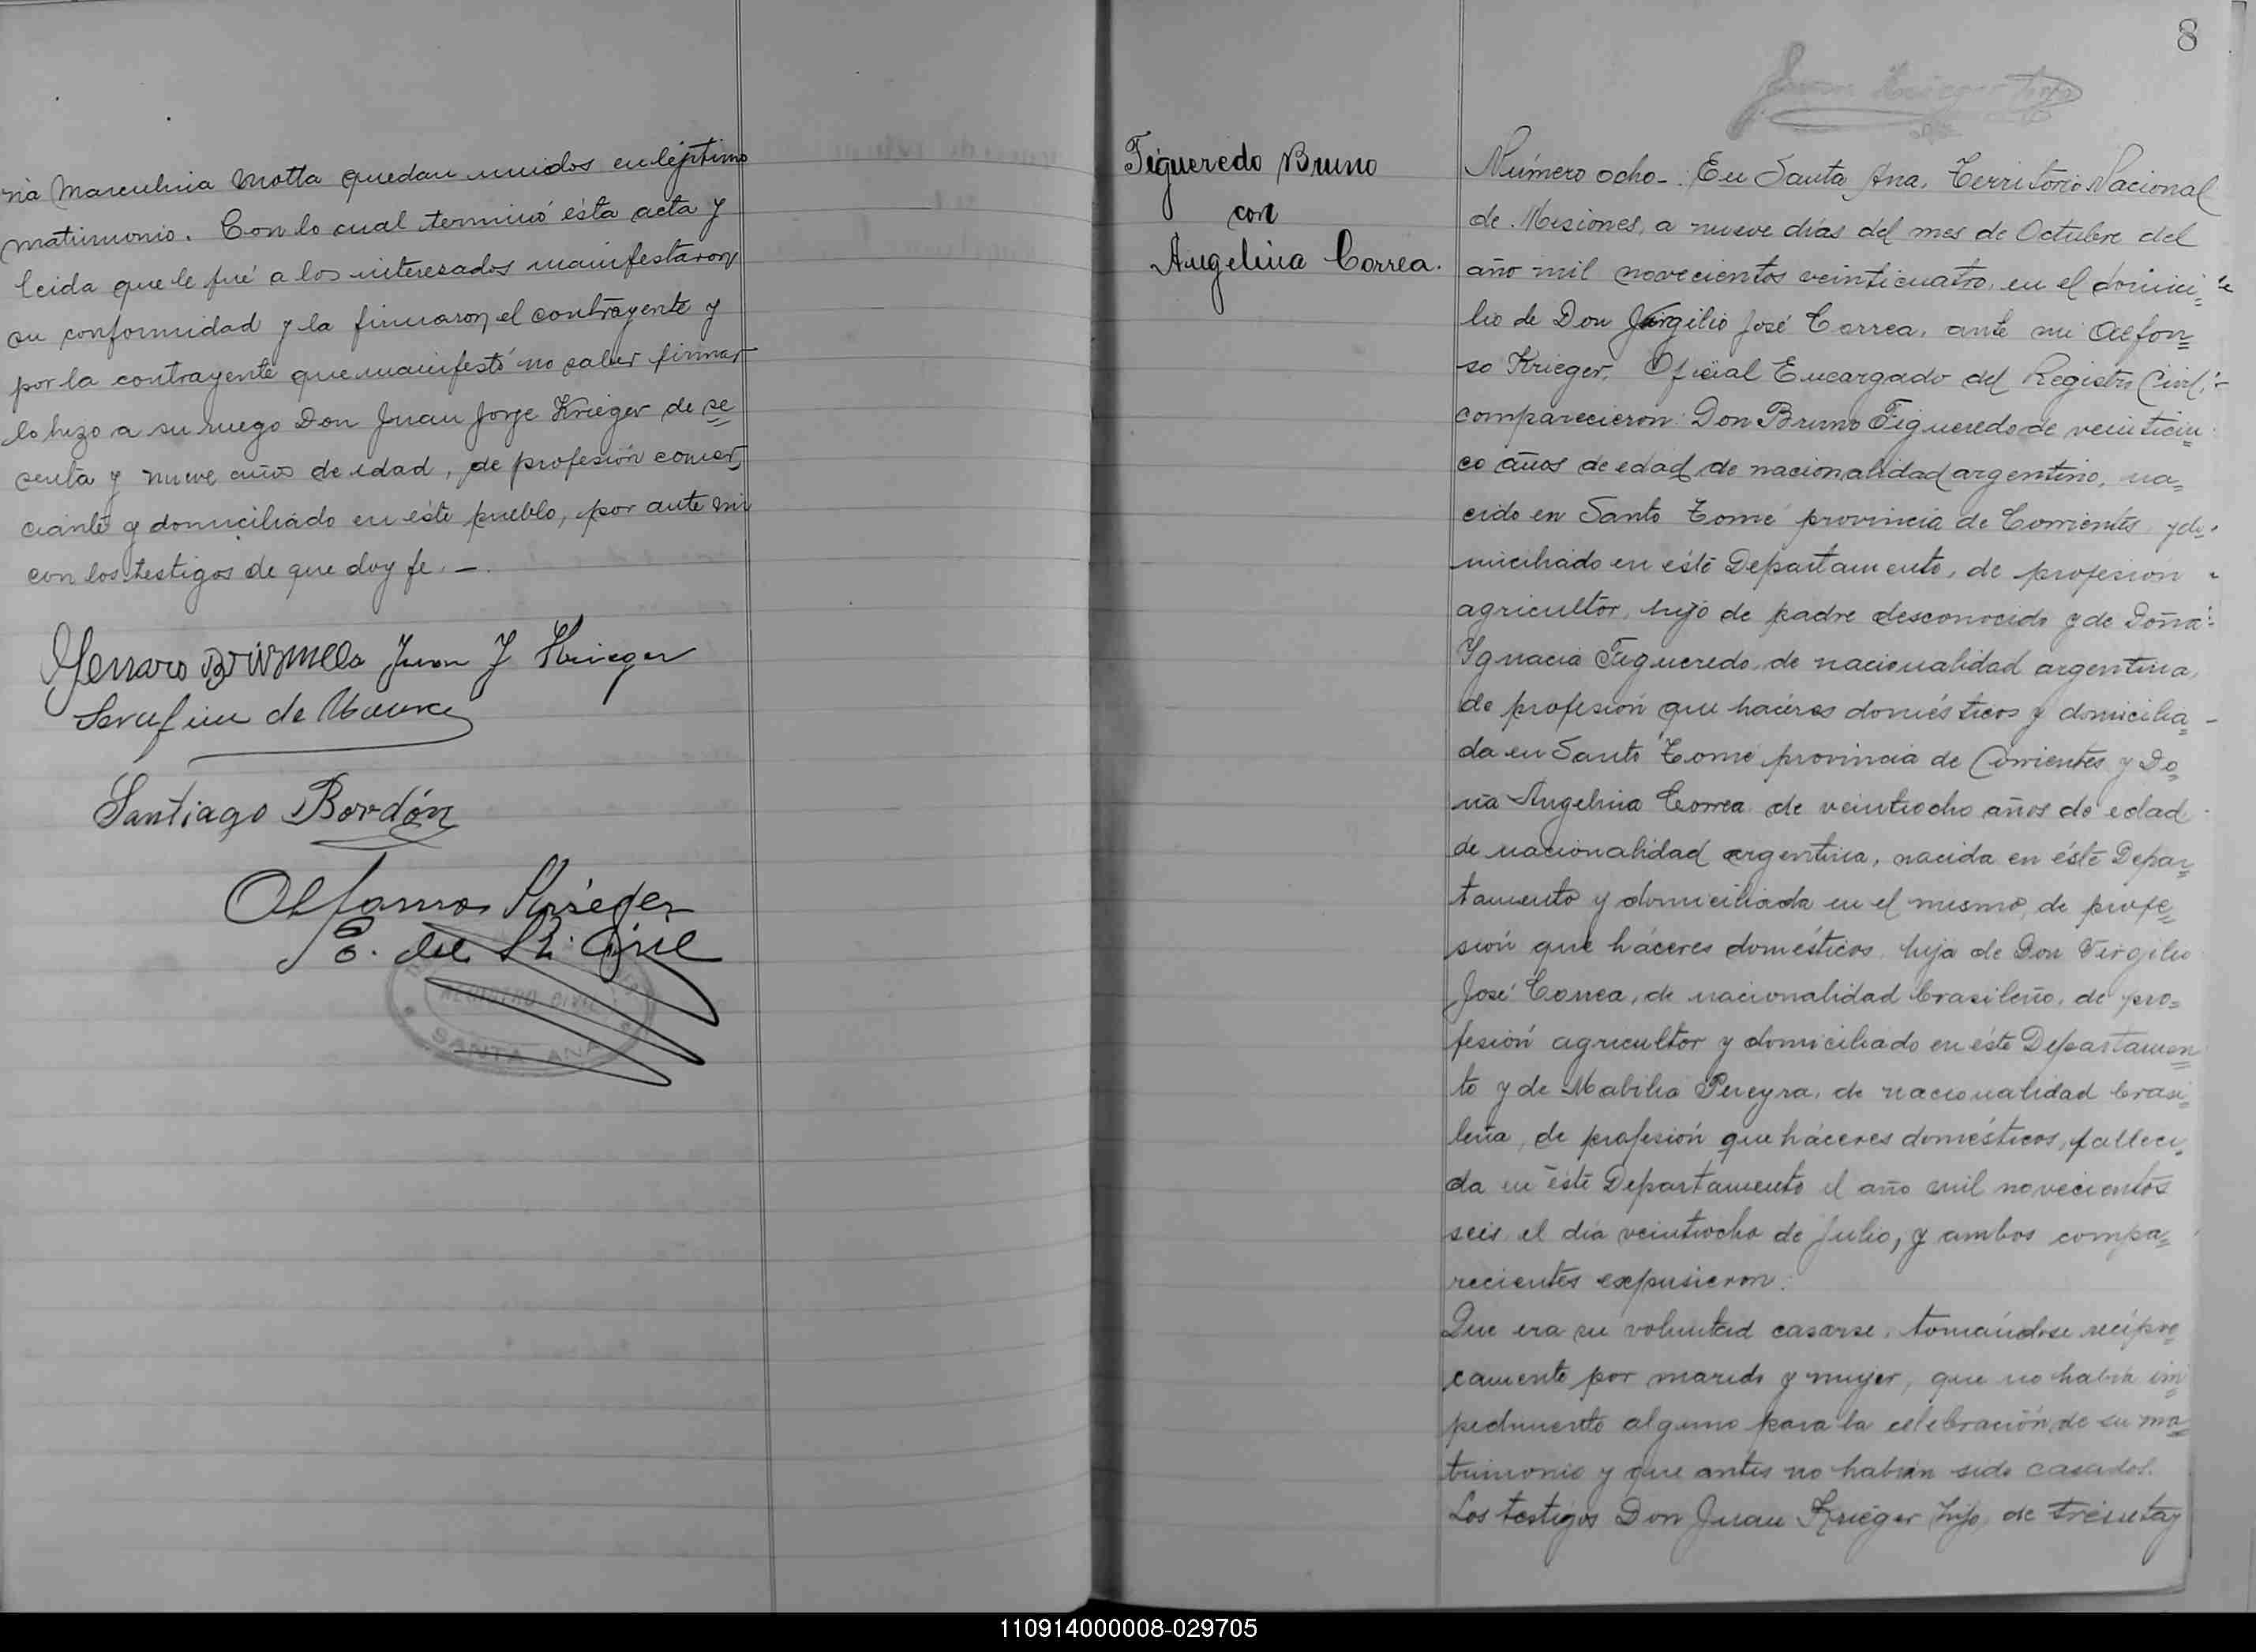 ria Marculina Motta quedan unidos en léjitimo
matrimonio. Con lo cual terminó ésta acta y
leida que le fué a los interesados manifestaron
su conformidad y la firmaron el contrayente y
por la contrayente que manifestó no saber firmar
lo hizo a su ruego Don Juan Jorge Krieger de se=
senta y nueve años de edad, de profesión comer=
ciante y domiciliado en éste pueblo, por ante mi
con los testigos de que doy fe. —.
Genaro Juan J Krieger
Serafin de
Santiago Bordón
Alfonso Krieger
E. del R. Civil
REGISTRO CIVIL
SANTA ANA
8
Juan Krieger hijo
Figueredo Bruno
con
Angelina Correa.
Número ocho-: En Santa Ana, Territorio Nacional
de Misiones, a nueve días del mes de Octubre del
año mil novecientos veinticuatro, en el domici=
lio de Don Virgilio José Correa, ante mi Alfon=
so Krieger, Oficial Encargado del Registro Civil,
comparecieron: Don Bruno Figueredo de veinticin=
co años de edad, de nacionalidad argentino, na=
cido en Santo Tomé provincia de Corrientes y do=
miciliado en éste Departamento, de profesión
agricultor, hijo de padre desconocido y de Doña
Ignacia Figueredo, de nacionalidad argentina,
de profesión que háceres domésticos y domicilia=
da en Santo Tomé provincia de Corrientes y Do=
ña Angelina Correa de veintiocho años de edad
de nacionalidad argentina, nacida en éste Depar=
tamento y domiciliada en el mismo, de profe=
sión que háceres domésticos, hija de Don Virgilio
José Correa, de nacionalidad brasileño, de pro=
fesión agricultor y domiciliado en éste Departamen=
to y de Mabilia Pereyra, de nacionalidad brasi=
leña, de profesión que háceres domésticos, falleci=
da en éste Departamento el año mil novecientos
seis el día veintiocho de Julio, y ambos compa=
recientes expusieron:
Que era su voluntad casarse, tomándose recípro=
camente por marido y mujer, que no había im=
pedimento alguno para la celebración de su ma=
trimonio y que antes no habian sido casados.
Los testigos Don Juan Krieger hijo, de treinta y
110914000008-029705